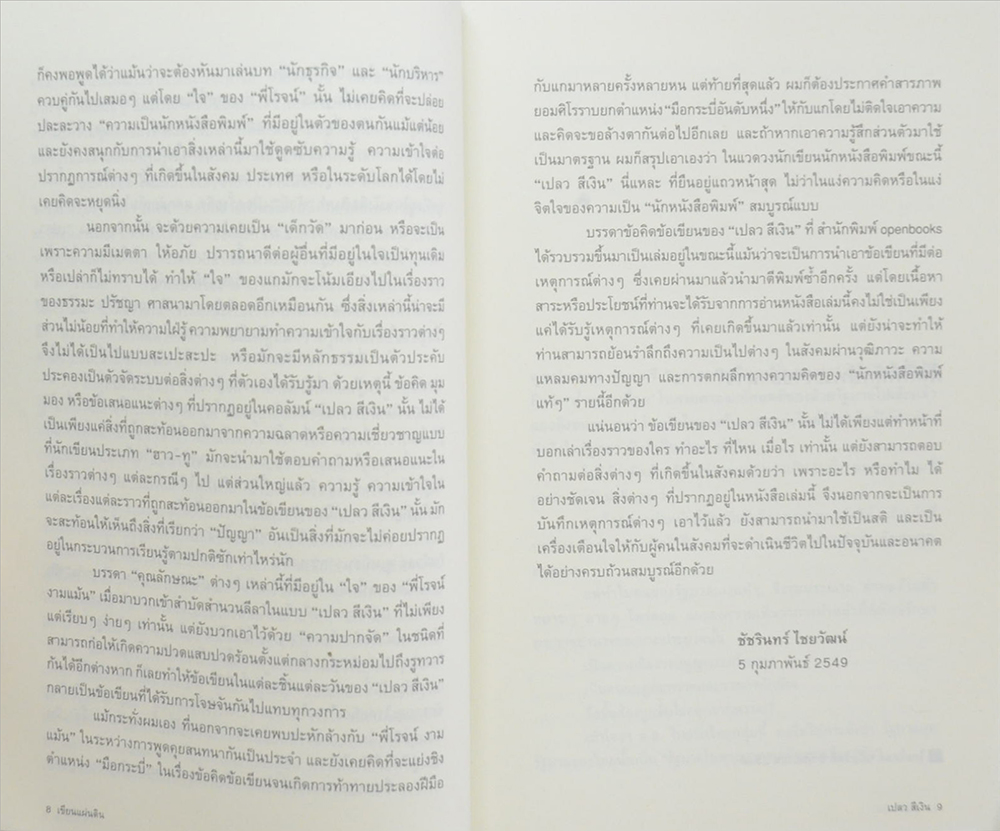 ก็คงพอพูดได้ว่าแม้นว่าจะต้องหันมาเล่นบท “นักธุรกิจ” และ “นักบริหาร”
ควบคู่กันไปเสมอๆ แต่โดย “ใจ” ของ “พี่โรจน์” นั้น ไม่เคยคิดที่จะปล่อย
ปละละวาง “ความเป็นนักหนังสือพิมพ์” ที่มีอยู่ในตัวของตนกันแม้แต่น้อย
และยังคงสนุกกับการนำเอาสิ่งเหล่านี้มาใช้ดูดซับความรู้ ความเข้าใจต่อ
ปรากฏการณ์ต่างๆ ที่เกิดขึ้นในสังคม ประเทศ หรือในระดับโลกได้โดยไม่
เคยคิดจะหยุดนิ่ง
นอกจากนั้น จะด้วยความเคยเป็น “เด็กวัด” มาก่อน หรือจะเป็น
เพราะความมีเมตตา ให้อภัย ปรารถนาดีต่อผู้อื่นที่มีอยู่ในใจเป็นทุนเดิม
หรือเปล่าก็ไม่ทราบได้ ทำให้ “ใจ” ของแกมักจะโน้มเอียงไปในเรื่องราว
ของธรรมะ ปรัชญา ศาสนามาโดยตลอดอีกเหมือนกัน ซึ่งสิ่งเหล่านี้น่าจะมี
ส่วนไม่น้อยที่ทำให้ความใฝ่รู้ ความพยายามทำความเข้าใจกับเรื่องราวต่างๆ
จึงไม่ได้เป็นไปแบบสะเปะสะปะ หรือมักจะมีหลักธรรมเป็นตัวประคับ
ประคองเป็นตัวจัดระบบต่อสิ่งต่างๆ ที่ตัวเองได้รับรู้มา ด้วยเหตุนี้ ข้อคิด มุม
มอง หรือข้อเสนอแนะต่างๆ ที่ปรากฏอยู่ในคอลัมน์ “เปลว สีเงิน” นั้น ไม่ได้
เป็นเพียงแค่สิ่งที่ถูกสะท้อนออกมาจากความฉลาดหรือความเชี่ยวชาญแบบ
ที่นักเขียนประเภท “ฮาว-ทู” มักจะนำมาใช้ตอบคำถามหรือเสนอแนะใน
เรื่องราวต่างๆ แต่ละกรณีๆ ไป แต่ส่วนใหญ่แล้ว ความรู้ ความเข้าใจใน
แต่ละเรื่องแต่ละราวที่ถูกสะท้อนออกมาในข้อเขียนของ “เปลว สีเงิน” นั้น มัก
จะสะท้อนให้เห็นถึงสิ่งที่เรียกว่า “ปัญญา” อันเป็นสิ่งที่มักจะไม่ค่อยปรากฏ
อยู่ในกระบวนการเรียนรู้ตามปกติซักเท่าไหร่นัก
บรรดา “คุณลักษณะ” ต่างๆ เหล่านี้ที่มีอยู่ใน “ใจ” ของ “พี่โรจน์
งามแม้น” เมื่อมาบวกเข้าสำบัดสำนวนลีลาในแบบ “เปลว สีเงิน” ที่ไม่เพียง
แต่เรียบๆ ง่ายๆ เท่านั้น แต่ยังบวกเอาไว้ด้วย “ความปากจัด” ในชนิดที่
สามารถก่อให้เกิดความปวดแสบปวดร้อนตั้งแต่กลางกระหม่อมไปถึงรูทวาร
กันได้อีกต่างหาก ก็เลยทำให้ข้อเขียนในแต่ละชิ้นแต่ละวันของ “เปลว สีเงิน”
กลายเป็นข้อเขียนที่ได้รับการโจษจันกันไปแทบทุกวงการ
แม้กระทั่งผมเอง ที่นอกจากจะเคยพบปะหักล้างกับ “พี่โรจน์ งาม
แม้น” ในระหว่างการพูดคุยสนทนากันเป็นประจำ และยังเคยคิดที่จะแย่งชิง
ตำแหน่ง “มือกระบี่” ในเรื่องข้อคิดข้อเขียนจนเกิดการท้าทายประลองฝีมือ
8 เขียนแผ่นดิน
กับแกมาหลายครั้งหลายหน แต่ท้ายที่สุดแล้ว ผมก็ต้องประกาศคำสารภาพ
ยอมศิโรราบยกตำแหน่ง “มือกระบี่อันดับหนึ่ง” ให้กับแกโดยไม่ติดใจเอาความ
และคิดจะขอล้างตากันต่อไปอีกเลย และถ้าหากเอาความรู้สึกส่วนตัวมาใช้
เป็นมาตรฐาน ผมก็สรุปเอาเองว่า ในแวดวงนักเขียนนักหนังสือพิมพ์ขณะนี้
“เปลว สีเงิน” นี่แหละ ที่ยืนอยู่แถวหน้าสุด ไม่ว่าในแง่ความคิดหรือในแง่
จิตใจของความเป็น “นักหนังสือพิมพ์” สมบูรณ์แบบ
บรรดาข้อคิดข้อเขียนของ “เปลว สีเงิน” ที่ สำนักพิมพ์ openbooks
ได้รวบรวมขึ้นมาเป็นเล่มอยู่ในขณะนี้แม้นว่าจะเป็นการนำเอาข้อเขียนที่มีต่อ
เหตุการณ์ต่างๆ ซึ่งเคยผ่านมาแล้วนำมาตีพิมพ์ซ้ำอีกครั้ง แต่โดยเนื้อหา
สาระหรือประโยชน์ที่ท่านจะได้รับจากการอ่านหนังสือเล่มนี้คงไม่ใช่เป็นเพียง
แค่ได้รับรู้เหตุการณ์ต่างๆ ที่เคยเกิดขึ้นมาแล้วเท่านั้น แต่ยังน่าจะทำให้
ท่านสามารถย้อนรำลึกถึงความเป็นไปต่างๆ ในสังคมผ่านวุฒิภาวะ ความ
แหลมคมทางปัญญา และการตกผลึกทางความคิดของ “นักหนังสือพิมพ์
แท้ๆ” รายนี้อีกด้วย
แน่นอนว่า ข้อเขียนของ “เปลว สีเงิน” นั้น ไม่ได้เพียงแต่ทำหน้าที่
บอกเล่าเรื่องราวของใคร ทำอะไร ที่ไหน เมื่อไร เท่านั้น แต่ยังสามารถตอบ
คำถามต่อสิ่งต่างๆ ที่เกิดขึ้นในสังคมด้วยว่า เพราะอะไร หรือทำไม ได้
อย่างชัดเจน สิ่งต่างๆ ที่ปรากฏอยู่ในหนังสือเล่มนี้ จึงนอกจากจะเป็นการ
บันทึกเหตุการณ์ต่างๆ เอาไว้แล้ว ยังสามารถนำมาใช้เป็นสติ และเป็น
เครื่องเตือนใจให้กับผู้คนในสังคมที่จะดำเนินชีวิตไปในปัจจุบันและอนาคต
ได้อย่างครบถ้วนสมบูรณ์อีกด้วย
ชัชรินทร์ ไชยวัฒน์
5 กุมภาพันธ์ 2549
เปลว สีเงิน 9